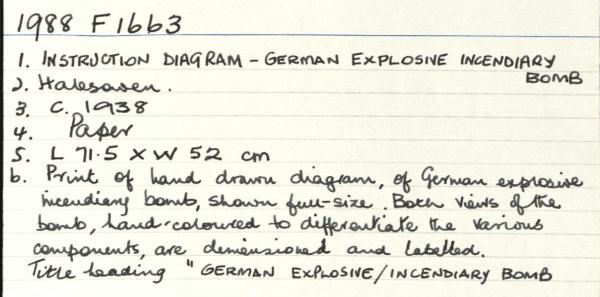 1988 F1663
1. INSTRUCTION DIAGRAM - GERMAN EXPLOSIVE INCENDIARY
BOMB
2. Halesowen.
3. C. 1938
4. Paper
5. L 71.5 X W 52 cm
6. Print of hand drawn diagram, of German explosive
incendiary bomb, shown full-size. Both views of the
bomb, hand-coloured to differentiate the various
components, are dimensioned and labelled.
Title heading "GERMAN EXPLOSIVE/INCENDIARY BOMB